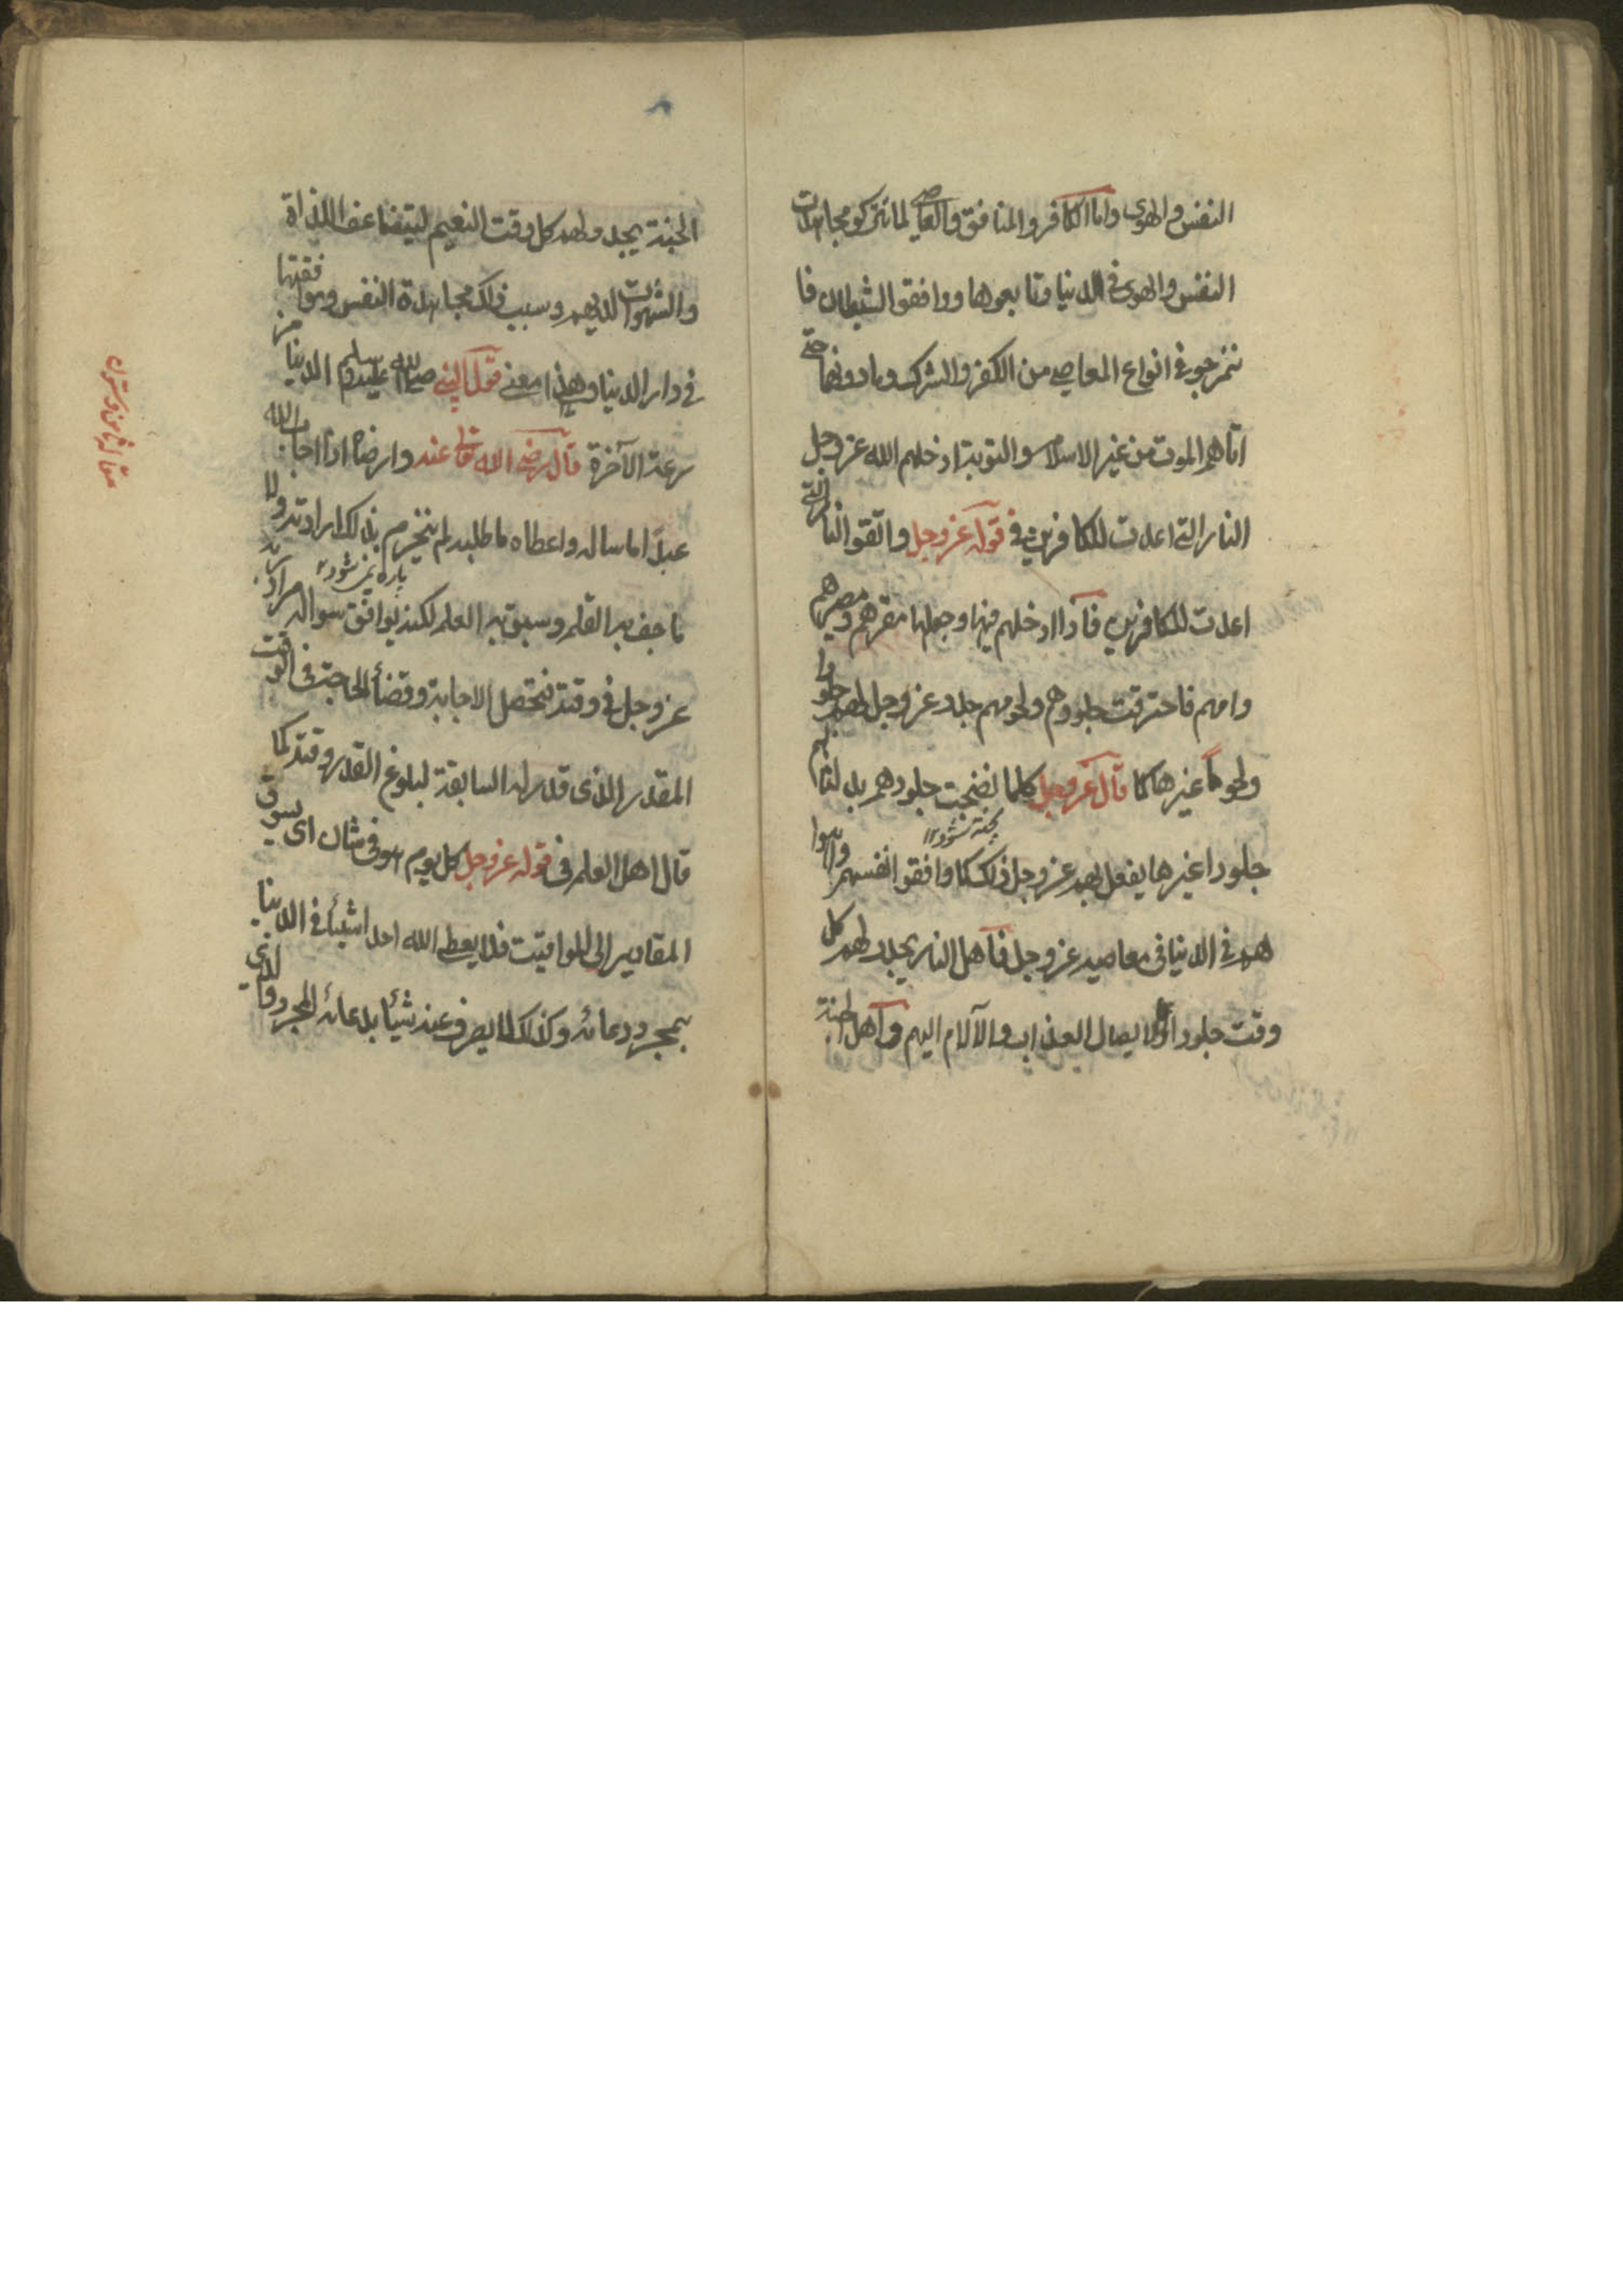 النفس والهوى واما الكافر والمنافق والعاصي لما تركو مجاهدات
النفس والهوى في الدنيا وتابعوها ووافقوا الشيطان فا
نتمرجو في انواع المعاصي من الكفر والشرك وما دونهما حتى
اتاهم الموت من غير الاسلام والتوبة ادخلهم الله عز وجل
النار التي اعدت للكافرين في قوله عز وجل واتقوا النار التي
اعدت للكافرين فاذا ادخلهم فيها وجعلها مقرهم ومصيرهم
وامهم فاحترقت جلودهم ولحومهم جلد عز وجل لهم جلودا
ولحوما غيرها كما قال عز وجل كلما نضجت جلودهم بدلناهم
پخته شود ١٢
جلودا غيرها يفعل بهم عز وجل ذلك كما وافقوا انفسهم واهوا
هم في الدنيا في معاصيه عز وجل فاهل النار يجدد لهم كل
وقت جلودا لايصال العذاب والآلام اليهم واهل الجنة
الجنة يجدد لهم كل وقت النعيم ليتضاعف اللذاة
والشهوات لديهم وسبب ذلك مجاهدة النفس وموافقتها
في دار الدنيا وهذا معنى قول النبي صلى الله عليه وسلم الدنيا مز
رعة الآخرة قال رضي الله تعالى عنه وارضاه اذا اجاب الله
عبدا ما ساله واعطاه ما طلبه لم ينخرم بذلك ارادته ولا
پاره نمي شود ١٢
ما جف به القلم وسبق به العلم لكنه يوافق سواله مراد ربه
عز وجل في وقته فتحصل الاجابة وقضأ الحاجة في الوقت
المقدر الذى قدر له السابقة لبلوغ القدر وقته كما
قال اهل العلم فى قوله عز وجل كل يوم هو فى شان اى يسوق
المقادير الى المواقيت فلا يعطي الله احدا شيئا في الدنيا
بمجرد دعائه وكذلك لا يصرف عنه شيئا بدعائه المجرد والذي